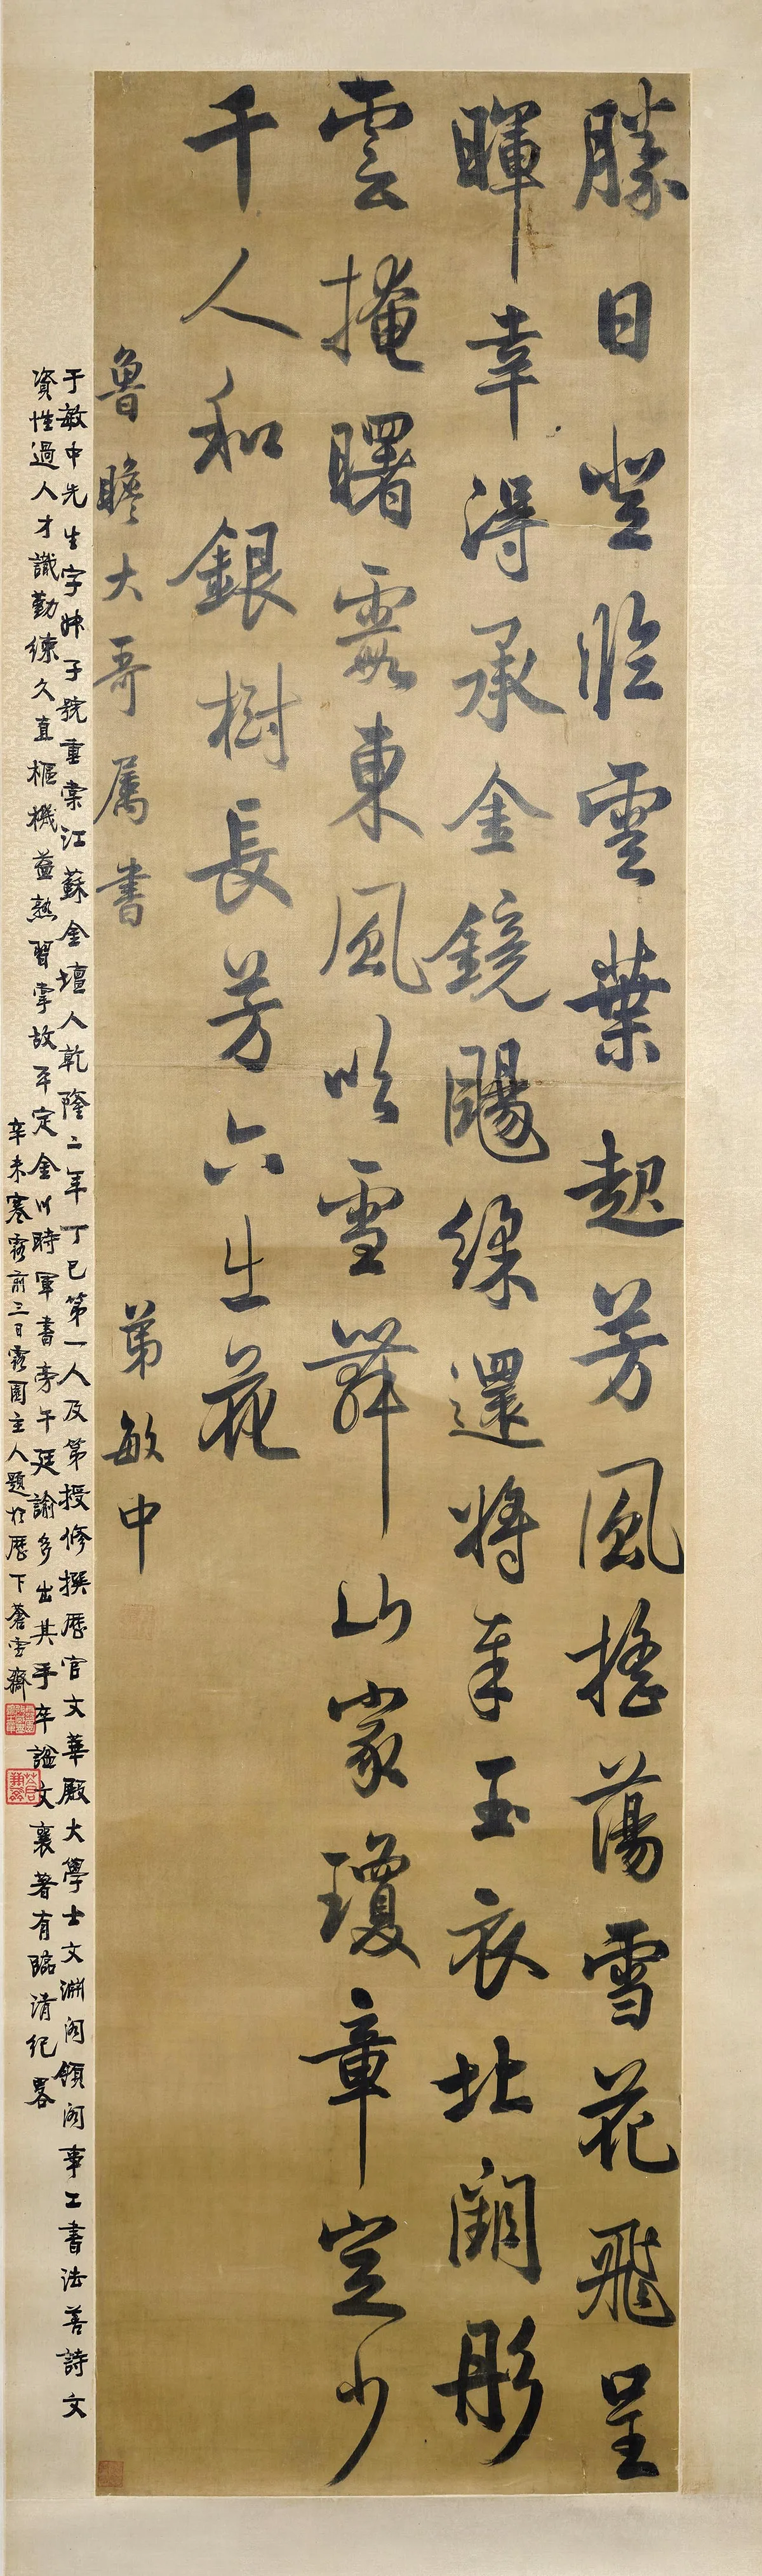 勝日登臨雲葉起芳風搖蕩雪花飛呈
暉幸得承金鏡颺綵還將奉玉衣北闕彤
雲掩曙霞東風吹雪舞山家瓊章定少
千人和銀樹長芳六出花
魯瞻大哥屬書
弟敏中
于敏中先生字叔子號重棠江蘇金壇人乾隆二年丁巳第一人及第授修撰歷官文華殿大學士文淵閣領閣事工書法善詩文
資性過人才識勤練久直樞機益熟習掌故平定金川時軍書旁午廷諭多出其手卒諡文襄著有臨清紀畧
辛未寒露前三日露園主人題於歷下蒼雪齋